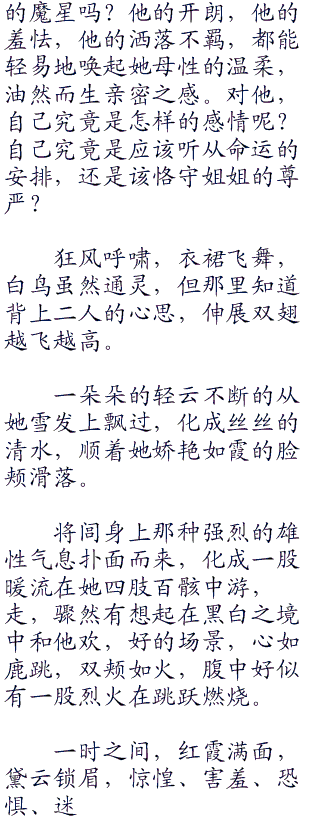 的魔星吗？他的开朗，他的
羞怯，他的洒落不羁，都能
轻易地唤起她母性的温柔，
油然而生亲密之感。对他，
自己究竟是怎样的感情呢？
自己究竟是应该听从命运的
安排，还是该恪守姐姐的尊
严？
狂风呼啸，衣裙飞舞，
白鸟虽然通灵，但那里知道
背上二人的心思，伸展双翅
越飞越高。
一朵朵的轻云不断的从
她雪发上飘过，化成丝丝的
清水，顺着她娇艳如霞的脸
颊滑落。
将闾身上那种强烈的雄
性气息扑面而来，化成一股
暖流在她四肢百骸中游，
走，骤然有想起在黑白之境
中和他欢，好的场景，心如
鹿跳，双颊如火，腹中好似
有一股烈火在跳跃燃烧。
一时之间，红霞满面，
黛云锁眉，惊惶、害羞、恐
惧、迷